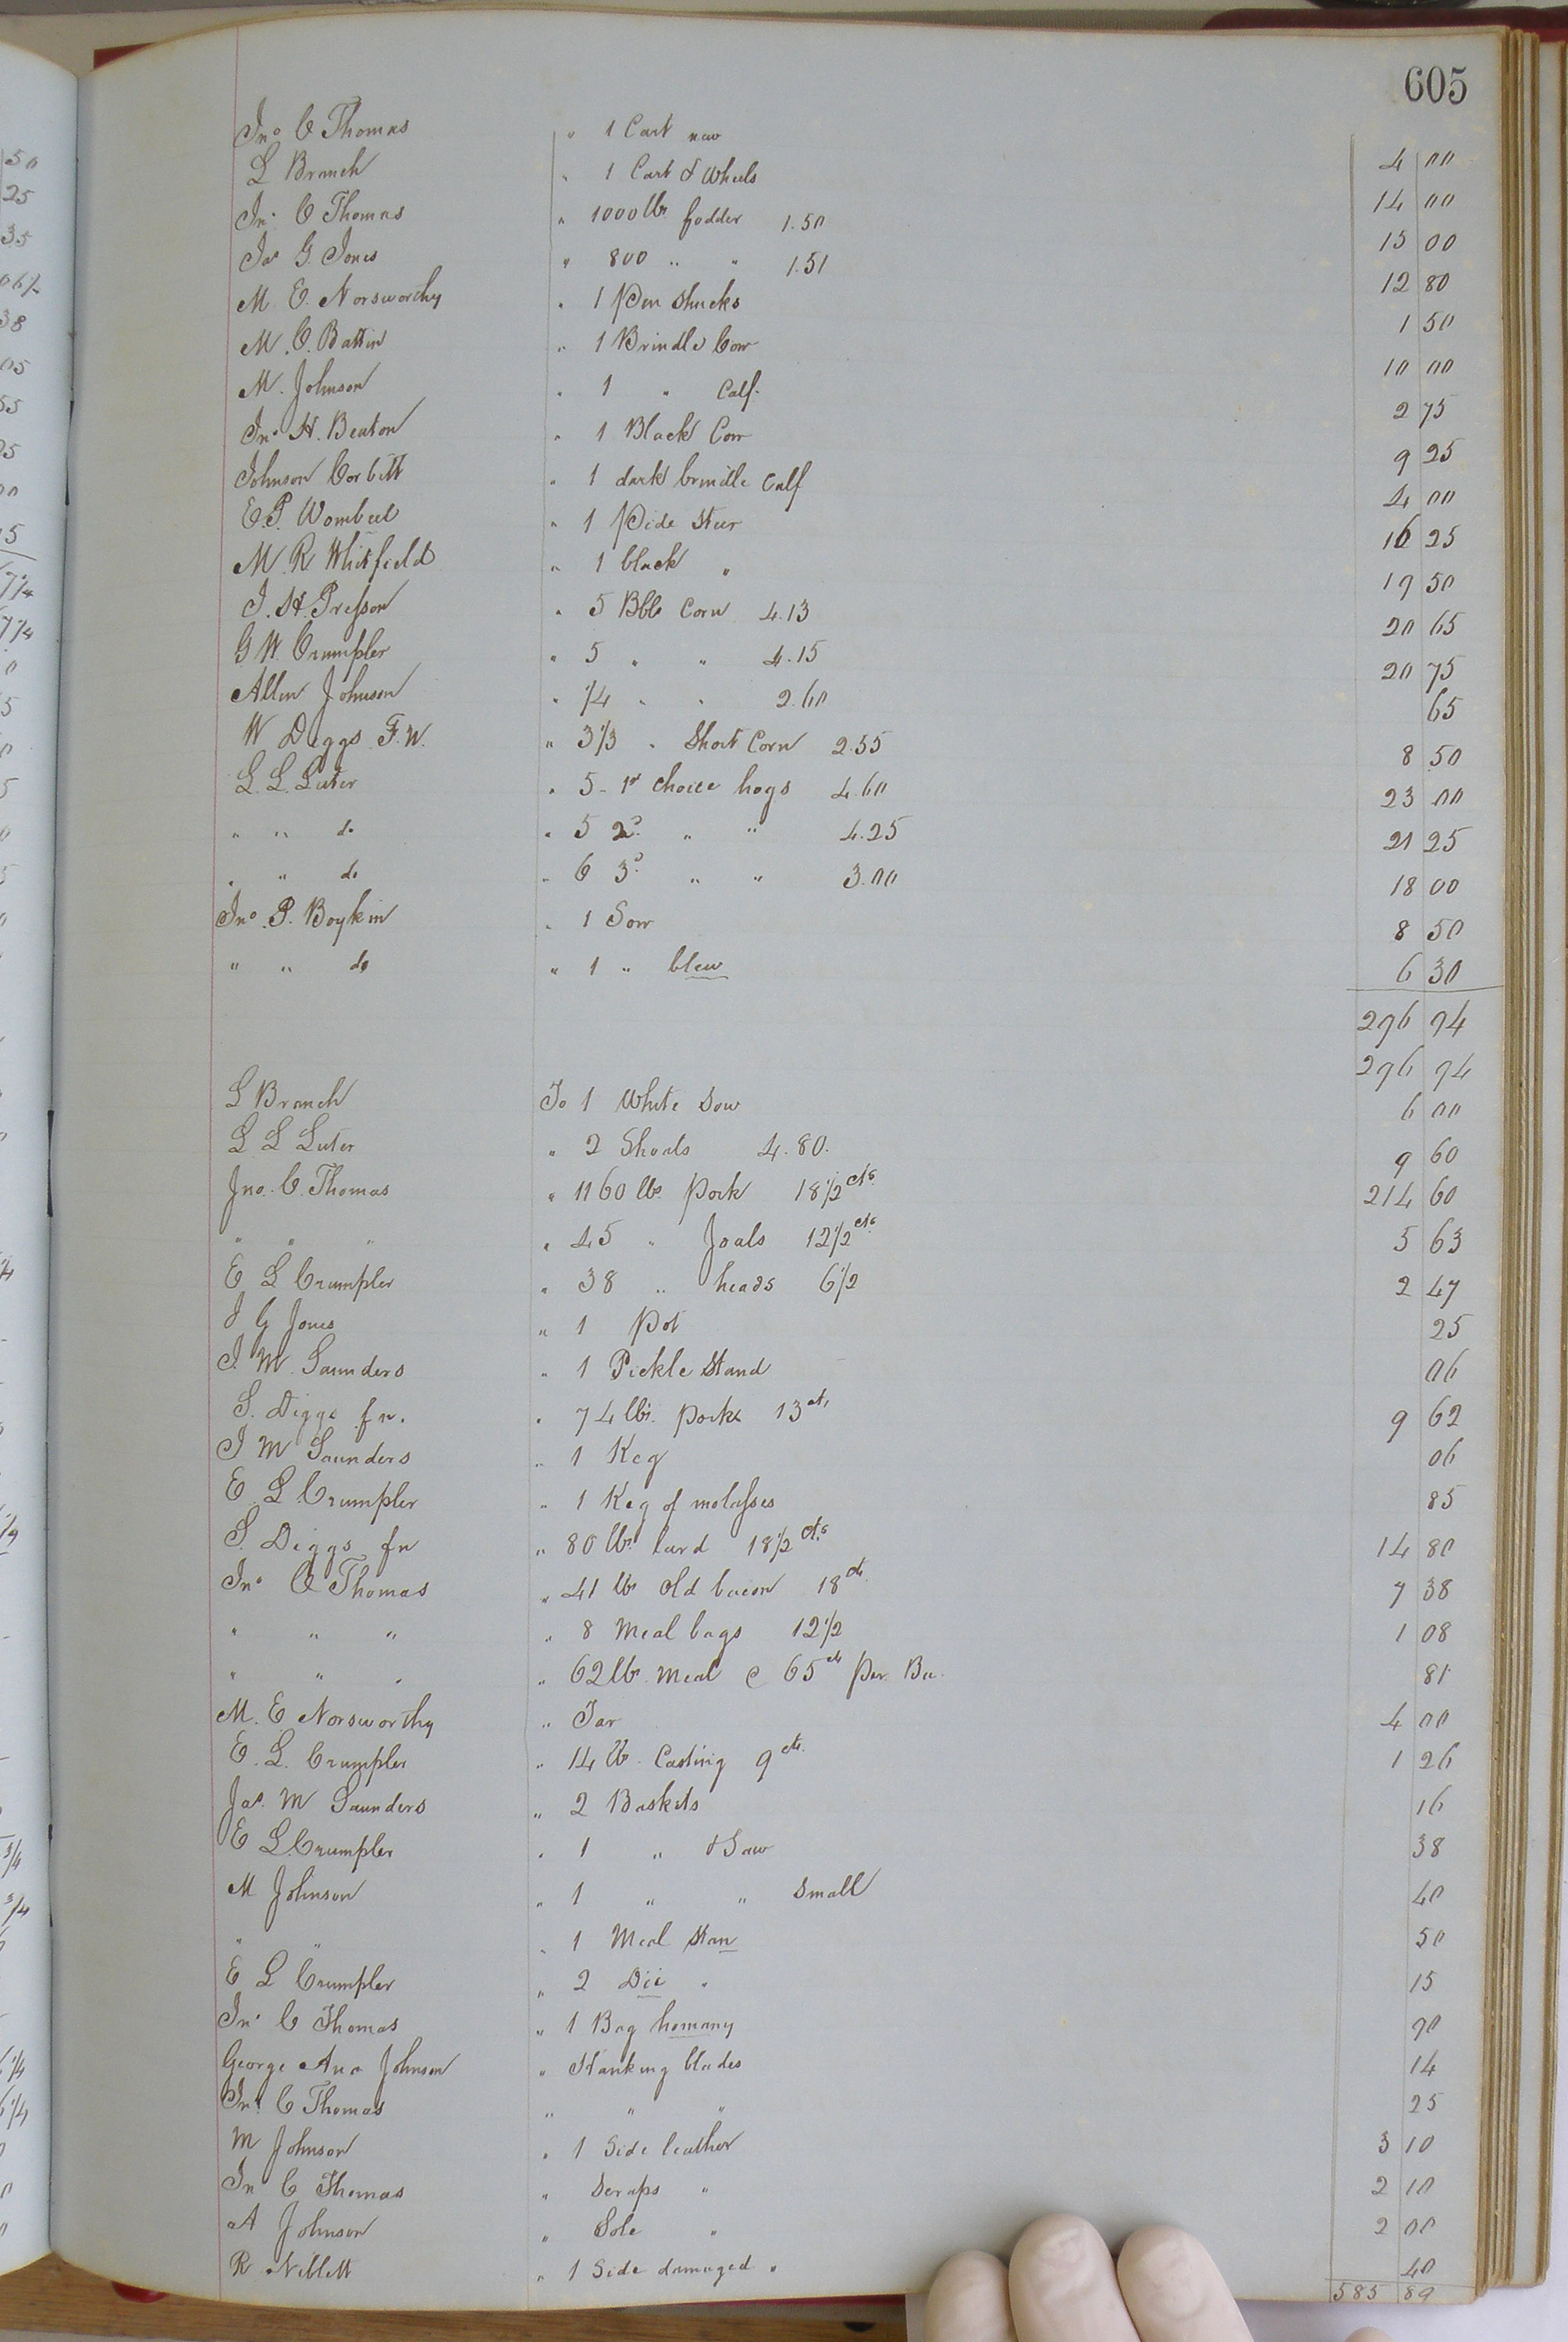 605
Jno C Thomas " 1 Cart new 4 00
L Branch " 1 Cart & Wheels 14 00
Jno C Thomas " 1000 lbs fodder 1.50 15 00
Jas G. Jones " 800 " " 1.51 12 80
M. E. Norsworthy " 1 Pen Shucks 1 50
M. C. Battin " 1 Brindle Cow 10 00
M. Johnson " 1 " Calf. 2 75
Jno H. Beaton " 1 Black Cow 9 25
Johnson Corbitt " 1 dark brindle Calf 4 00
E. P. Wombeel " 1 Pide Steer 16 25
M. R Whitfield " 1 black " 19 50
J. H. Presson " 5 Bbls Corn 4.13 20 65
G W. Crumpler " 5 " " 4.15 20 75
Allen Johnson " 1/4 " " 2.60 65
W Diggs F.N. " 3 1/3 " Short Corn 2.55 8 50
L. L. Luter " 5 - 1st choice hogs 4.60 23 00
" " do " 5 2d " " 4.25 21 25
" " do " 6 3d " " 3.00 18 00
Jno P. Boykin " 1 Sow 8 50
" " do " 1 " blew 6 30
296 94
296 94
L Branch To 1 White Sow 6 00
L L Luter " 2 Shoats 4.80. 9 60
Jno. C. Thomas " 1160 lbs Pork 18 1/2 cts 214 60
" " " " 45 " Joals 12 1/2 cts 5 63
E L Crumpler " 38 " heads 6 1/2 2 47
J G Jones " 1 Pot 25
J. M. Saunders " 1 Pickle Stand 06
S. Diggs fn. " 74 lbs. pork 13 cts 9 62
J M Saunders " 1 Keg 06
E L Crumpler " 1 Keg of molasses 85
S. Diggs fn " 80 lbs lard 18 1/2 cts 14 80
Jno C Thomas " 41 lbs old bacon 18 cts 7 38
" " " " 8 Meal bags 12 1/2 1 08
" " " " 62 lbs. Meal @ 65 cts Per. Bu. 81
M. E Norsworthy " Tar 4 00
E. L. Crumpler " 14 lb. Casting 9 cts. 1 26
Jas. M Saunders " 2 Baskets 16
E L. Crumpler " 1 " & Saw 38
M Johnson " 1 " " Small 40
" " " 1 Meal Stan 50
E L Crumpler " 2 Dii " 15
Jno C Thomas " 1 Bag homany 90
George Ana Johnson " Hanking blades 14
Jno C Thomas " " " 25
M Johnson " 1 Side leather 3 10
Jno C Thomas " Scraps " 2 10
A Johnson " Sole " 2 00
R. Niblett " 1 Side damaged " 40
585 89